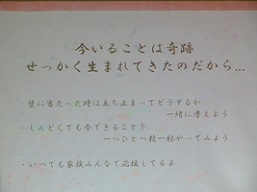 今いることは奇跡
せっかく生まれてきたのだから…
・壁に当たった時は立ち止まってどうするか
一緒に考えよう
・しんどくても今できることを
一つひとつ精一杯やってみよう
・いつでも家族みんなで応援してるよ